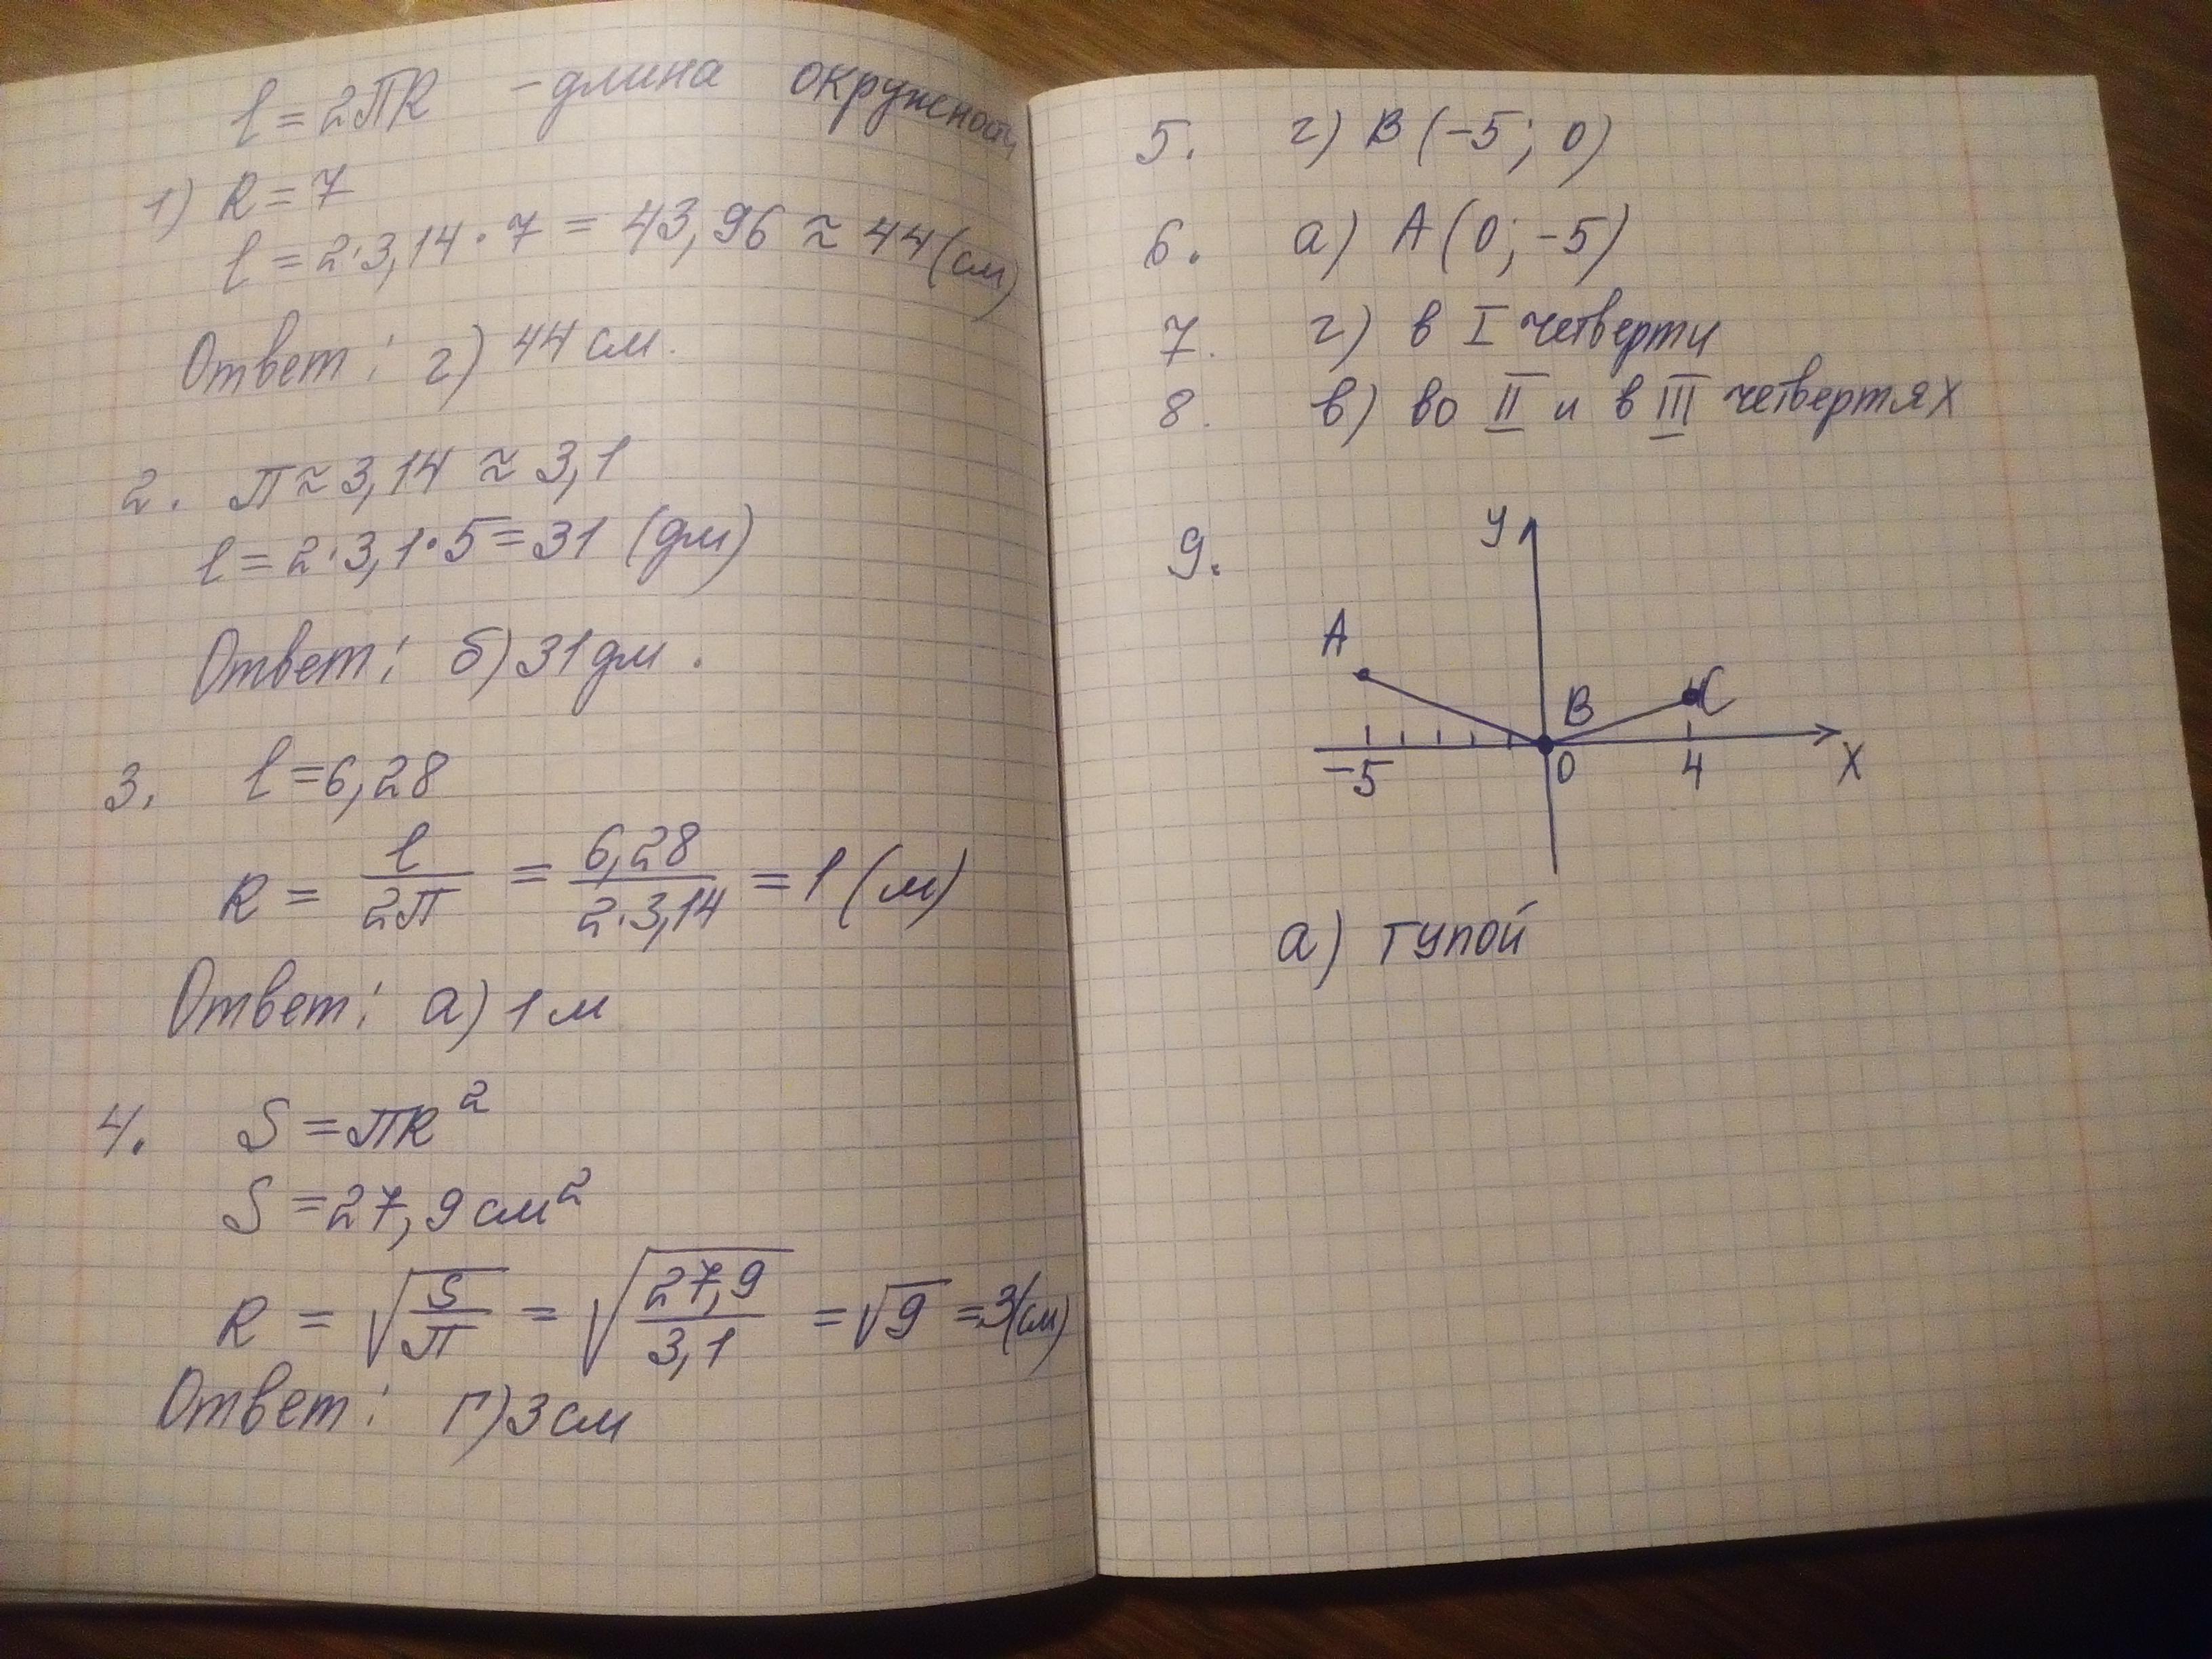 l = 2πR - длина окружности
1) R = 7
l = 2·3,14·7 = 43,96 ≈ 44 (см)
Ответ: г) 44 см.
2. π ≈ 3,14 ≈ 3,1
l = 2·3,1·5 = 31 (дм)
Ответ: б) 31 дм.
3. l = 6,28
R = l/2π = 6,28/2·3,14 = 1 (м)
Ответ: а) 1 м
4. S = πR²
S = 27,9 см²
R = √(S/π) = √(27,9/3,1) = √9 = 3 (см)
Ответ: г) 3 см
5. г) B (-5; 0)
6. а) A (0; -5)
7. г) в I четверти
8. в) во II и в III четвертях
9.
y
A
B
C
-5
0
4
x
а) тупой